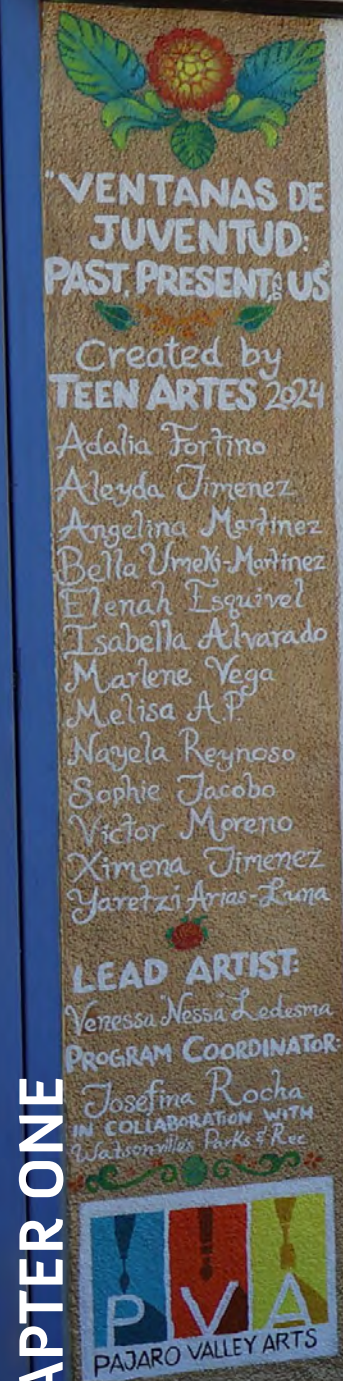 "VENTANAS DE
JUVENTUD:
PAST, PRESENT, & US"
Created by
TEEN ARTES 2024
Adalia Fortino
Aleyda Jimenez
Angelina Martinez
Bella Umeki-Martinez
Elenah Esquivel
Isabella Alvarado
Marlene Vega
Melisa A.P.
Nayela Reynoso
Sophie Jacobo
Victor Moreno
Ximena Jimenez
Yaretzi Arias-Luna
LEAD ARTIST:
Venessa "Nessa" Ledesma
PROGRAM COORDINATOR:
Josefina Rocha
IN COLLABORATION WITH
Watsonville's Parks & Rec
PVA
PAJARO VALLEY ARTS
APTER ONE